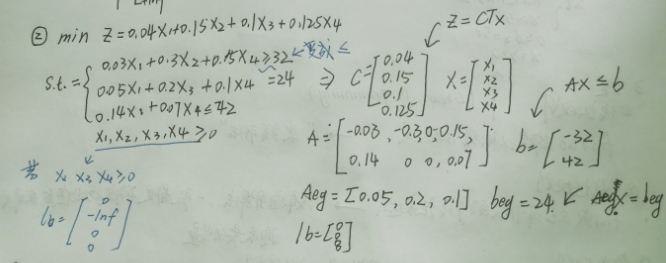 ② min Z=0.04X1+0.15X2+0.1X3+0.125X4
Z=CTx
s.t.={ 0.03X1+0.3X2+0.15X4≥32 ← 要改 ≤
0.05X1+0.2X3+0.1X4=24
0.14X1+0.07X4≤42
X1,X2,X3,X4≥0
⇒ C=[0.04 0.15 0.1 0.125] X=[X1 X2 X3 X4]
AX≤b
A=[-0.03, -0.3, 0, -0.15,
0.14 0 0, 0.07]
b=[-32 42]
若 X1 X3 X4≥0
lb=[0 -Inf 0 0]
Aeg=[0.05, 0.2, 0.1] beg=24 ← Aeg X=beg
lb=[0 0 0]